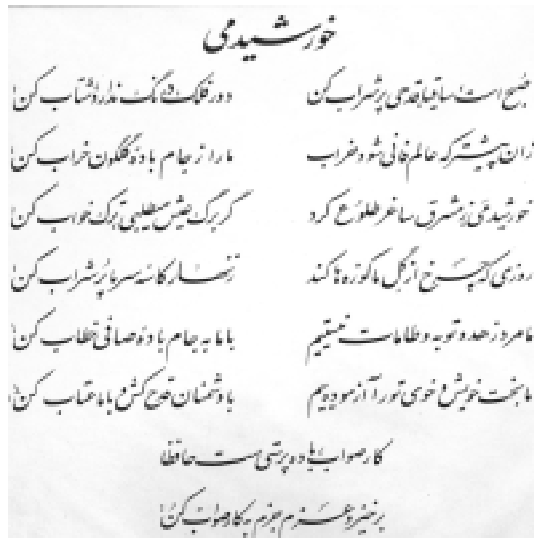 خورشید می
صبح است ساقیا قدحی پر شراب کن دور فلک درنگ ندارد شتاب کن!
زان پیشتر که عالم فانی شود خراب ما را ز جام باده گلگون خراب کن!
خورشید می ز مشرق ساغر طلوع کرد گر برگ عیش میطلبی ترک خواب کن!
روزی که چرخ از گل ما کوزه ها کند زنهار کاسه سر ما پر شراب کن!
ما مرد زهد و توبه و طامات نیستیم با ما به جام باده صافی خطاب کن!
ما بخت خویش و خوی تو را آزموده ایم با دشمنان قدح کش و با ما عتاب کن!
کار صواب باده پرستی است حافظا
برخیز و عزم جزم به کار صواب کن!